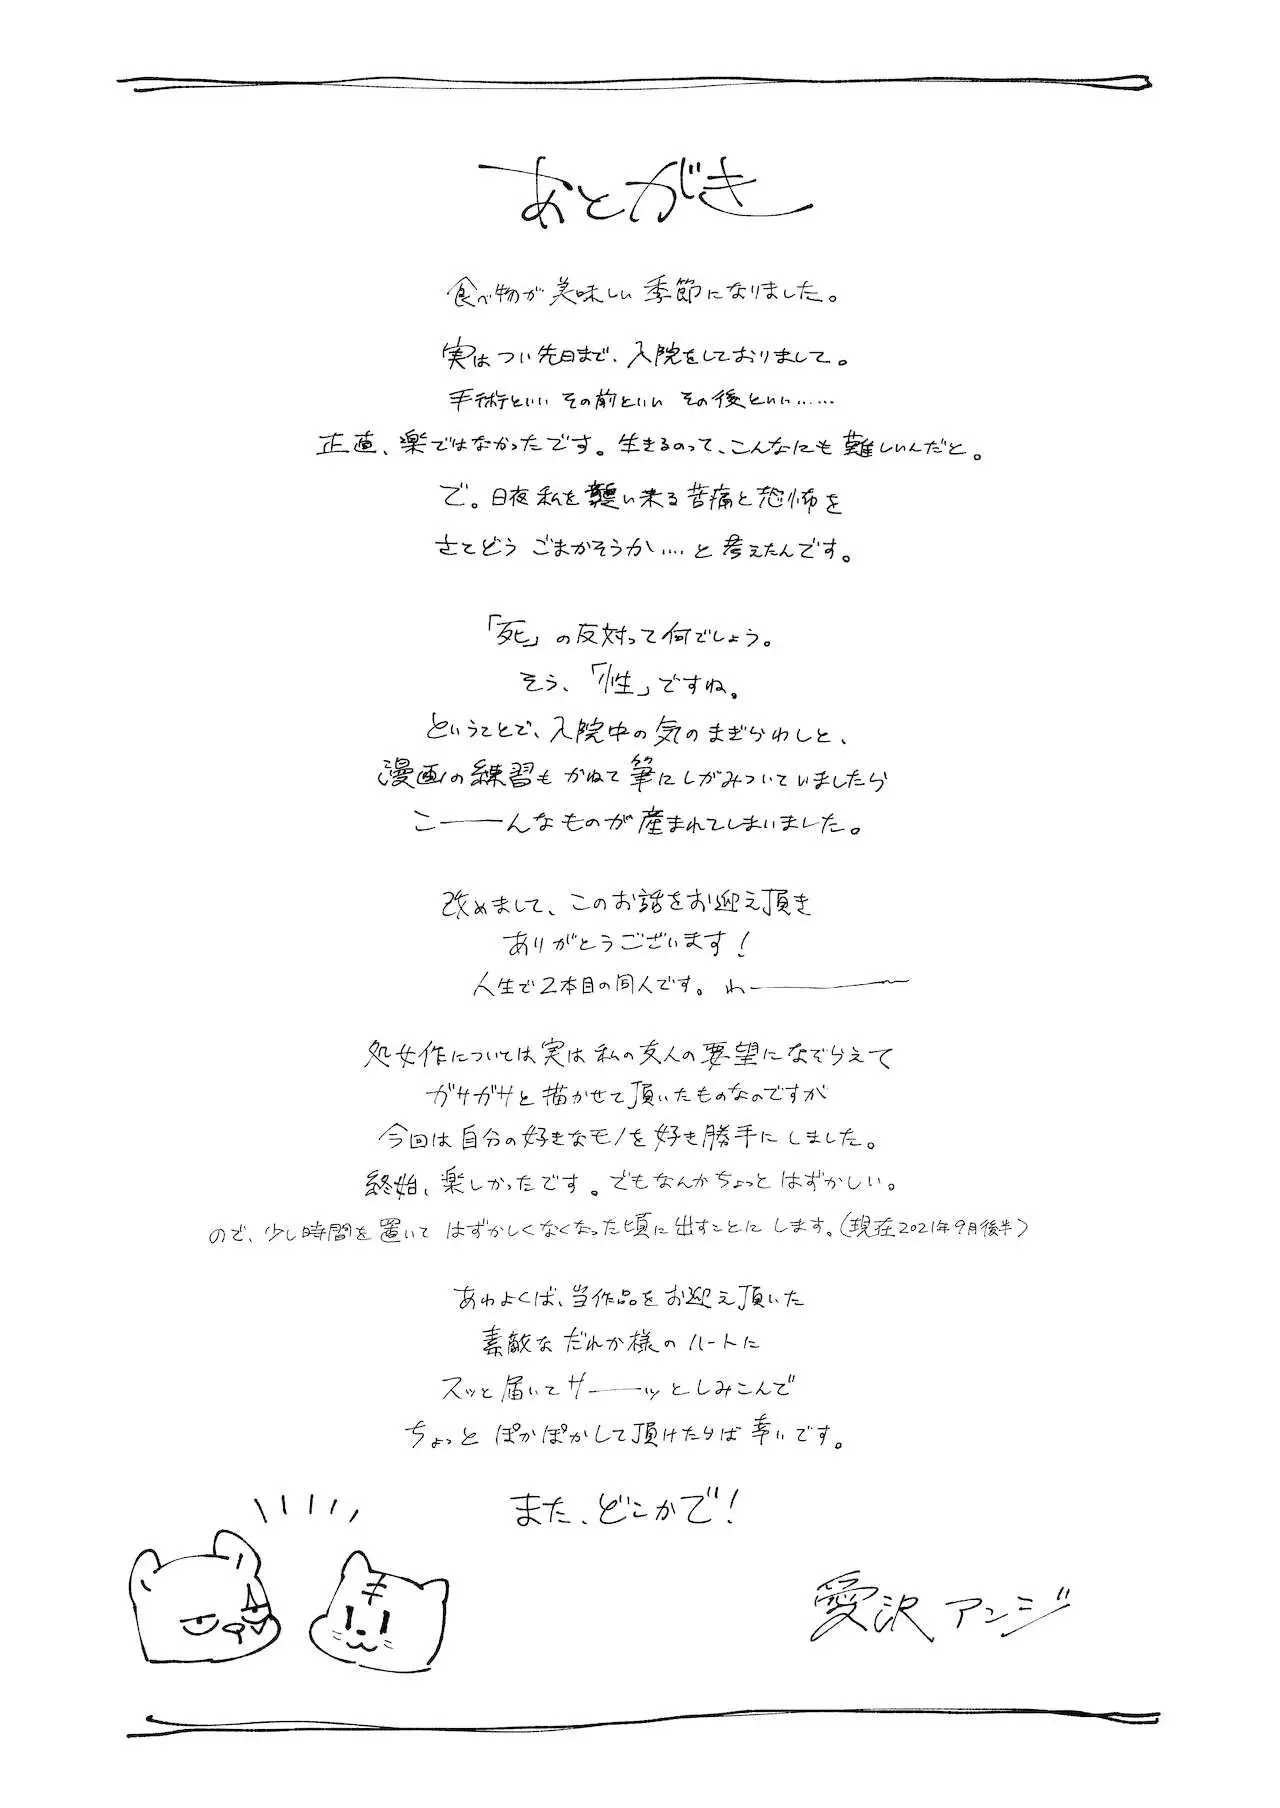 あとがき
食べ物が美味しい季節になりました。
実はつい先日まで、入院をしておりまして。
手術といい その前といい その後といい……
正直、楽ではなかったです。生きるのって、こんなにも難しいんだと。
で。日夜私を襲い来る苦痛と恐怖を
さてどう ごまかそうか‥‥と考えたんです。
「死」の反対って何でしょう。
そう、「性」ですね。
ということで、入院中の気のまぎらわしと、
漫画の練習もかねて筆にしがみついていましたら
こーーーんなものが産まれてしまいました。
改めまして、このお話をお迎え頂き
ありがとうございます!
人生で2本目の同人です。わーーーー
処女作については実は私の友人の要望になぞらえて
ガサガサと描かせて頂いたものなのですが
今回は自分の好きなモノを好き勝手にしました。
終始、楽しかったです。でもなんかちょっとはずかしい。
ので、少し時間を置いて はずかしくなくなった頃に出すことにします。(現在2021年9月後半)
あわよくば、当作品をお迎え頂いた
素敵などれか様のハートに
スッと届いてサーーッとしみこんで
ちょっと ぽかぽかして頂けたらば幸いです。
また、どこかで!
愛沢アンジ